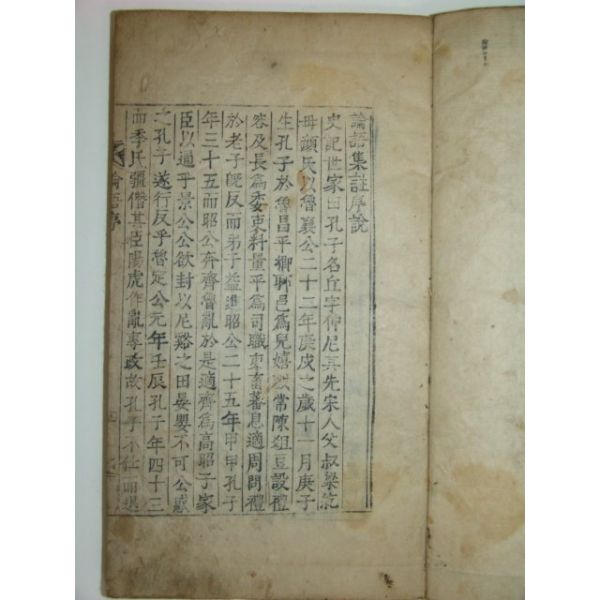 論語集註序說
史記世家曰孔子名丘字仲尼其先宋人父叔梁紇
母顏氏以魯襄公二十二年庚戌之歲十一月庚子
生孔子於魯昌平鄉陬邑爲兒嬉戱常陳俎豆設禮
容及長爲委吏料量平爲司職吏畜蕃息適周問禮
於老子旣反而弟子益進昭公二十五年甲申孔子
年三十五而昭公奔齊魯亂於是適齊爲高昭子家
臣以通乎景公公欲封以尼谿之田晏嬰不可公惑
之孔子遂行反乎魯定公元年壬辰孔子年四十三
而季氏强僭其臣陽虎作亂專政故孔子不仕而退
論語序